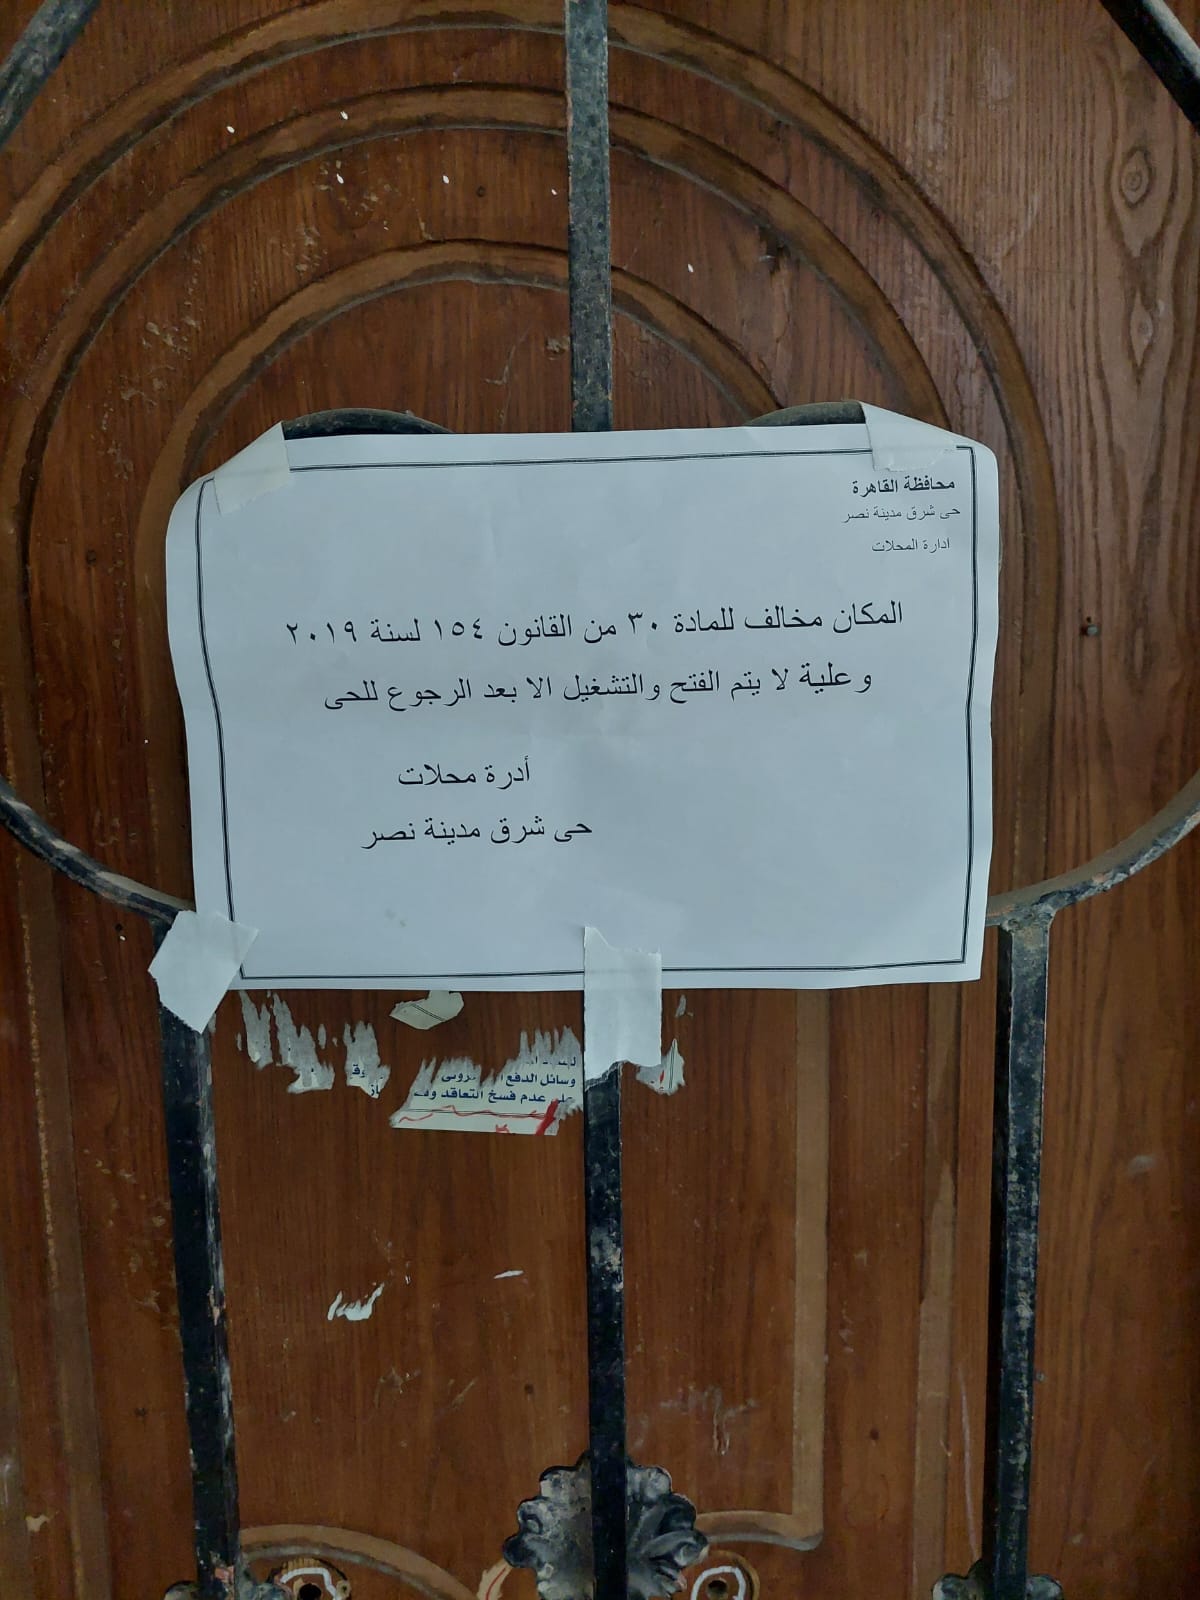 محافظة القاهرة
حى شرق مدينة نصر
ادارة المحلات
المكان مخالف للمادة ٣٠ من القانون ١٥٤ لسنة ٢٠١٩
وعلية لا يتم الفتح والتشغيل الا بعد الرجوع للحى
أدرة محلات
حى شرق مدينة نصر
وسائل الدفع
عدم فسخ التعاقد